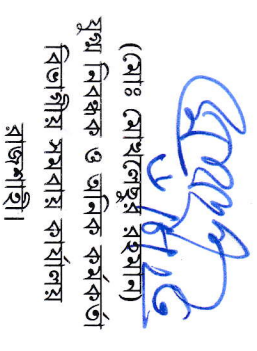 (মোঃ মোখলেছুর রহমান)
যুগ্ম নিবন্ধক ও আনিক কর্মকর্তা
বিভাগীয় সমবায় কার্যালয়
রাজশাহী।